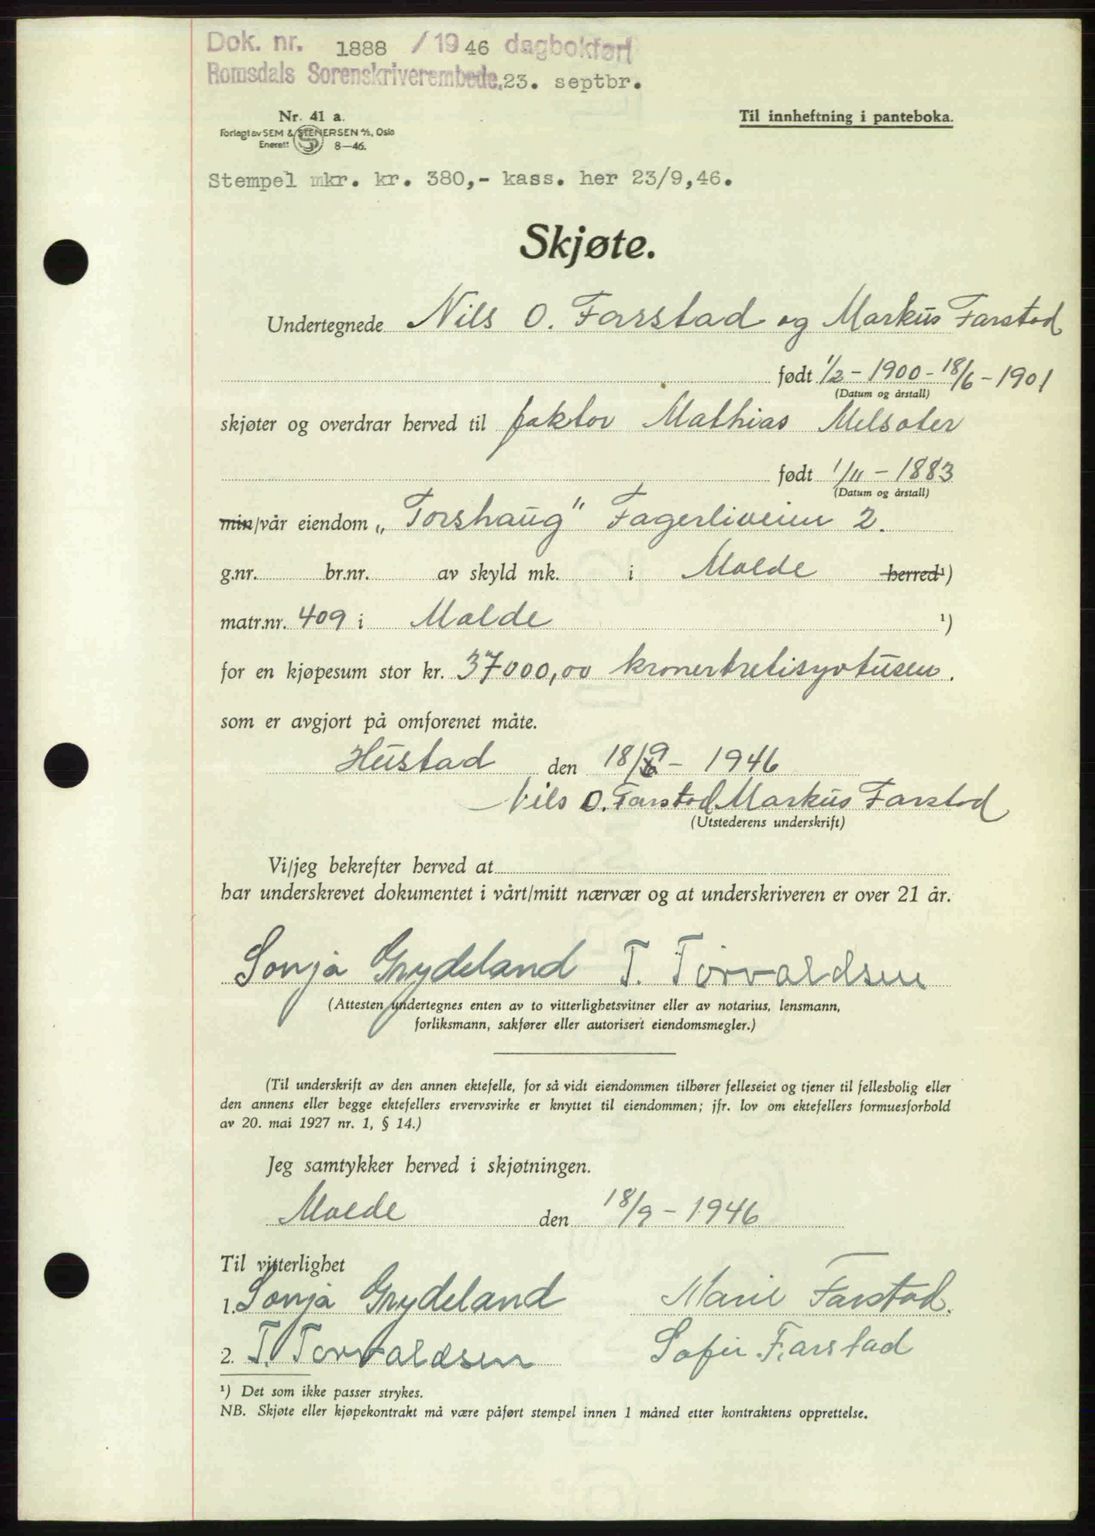 Dok. nr. 1888 /1946 dagbokført
Romsdals Sorenskriverembede, 23. septbr.
Nr. 41 a.
Til innheftning i panteboka.
Forlagt av SEM & STENERSEN A/S, Oslo
Enerett 8—46.
Stempel mkr. kr. 380,- kass. her 23/9,46.
Skjøte.
Undertegnede Nils O. Farstad og Markus Farstad
født 1/2 - 1900 - 18/6 - 1901
(Datum og årstall)
skjøter og overdrar herved til faktor Mathias Melsæter
født 1/11 - 1883
(Datum og årstall)
min/vår eiendom „Torshaug" Fagerliveien 2.
g.nr. br.nr. av skyld mk. i Molde herred¹)
matr.nr. 409 i Molde ¹)
for en kjøpesum stor kr. 37000,00 kronertretisyvtusen.
som er avgjort på omforenet måte.
Hustad den 18/9 - 1946
Nils O. Farstad Markus Farstad
(Utstederens underskrift)
Vi/jeg bekrefter herved at
har underskrevet dokumentet i vårt/mitt nærvær og at underskriveren er over 21 år.
Sonja Grydeland T. Torvaldsen
(Attesten undertegnes enten av to vitterlighetsvitner eller av notarius, lensmann,
forliksmann, sakfører eller autorisert eiendomsmegler.)
(Til underskrift av den annen ektefelle, for så vidt eiendommen tilhører felleseiet og tjener til fellesbolig eller
den annens eller begge ektefellers ervervsvirke er knyttet til eiendommen; jfr. lov om ektefellers formuesforhold
av 20. mai 1927 nr. 1, § 14.)
Jeg samtykker herved i skjøtningen.
Molde den 18/9 - 1946
Til vitterlighet
1. Sonja Grydeland Marie Farstad.
2. T. Torvaldsen Sofie Farstad
¹) Det som ikke passer strykes.
NB. Skjøte eller kjøpekontrakt må være påført stempel innen 1 måned etter kontraktens opprettelse.